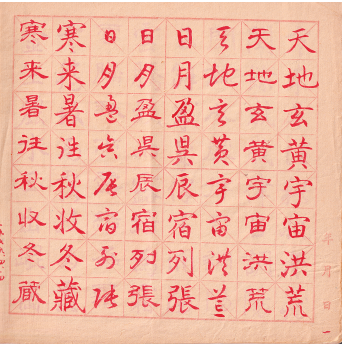 天地玄黄宇宙洪荒
天地玄黄宇宙洪荒
天地玄黄宇宙洪荒
日月盈昃辰宿列張
日月盈昃辰宿列張
日月盈昃辰宿列張
寒来暑往秋收冬藏
寒来暑往秋收冬藏
年月日